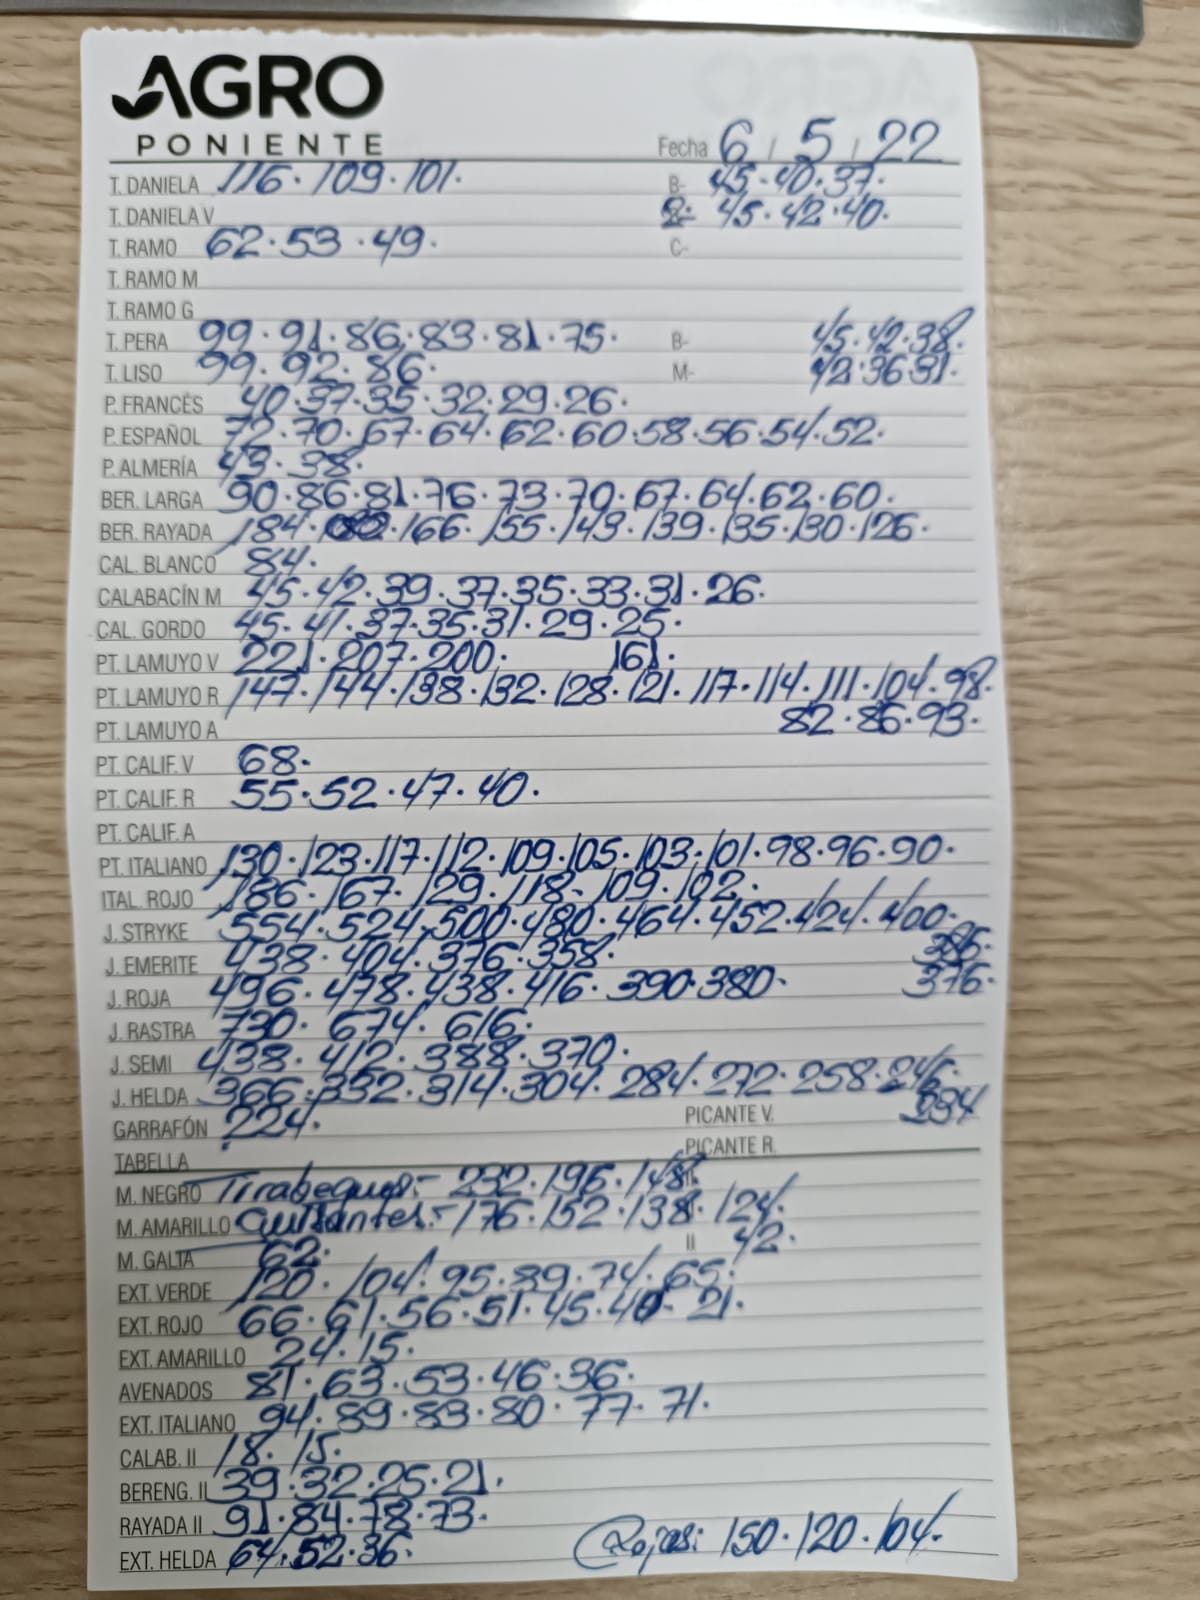 AGRO
PONIENTE
Fecha 6 / 5 / 22
T. DANIELA 116 · 109 · 101 · B- 45 · 40 · 37 ·
T. DANIELA V 45 · 42 · 40 ·
T. RAMO 62 · 53 · 49 · C-
T. RAMO M
T. RAMO G
T. PERA 99 · 91 · 86 · 83 · 81 · 75 · B- 45 · 42 · 38 ·
T. LISO 99 · 92 · 86 · M- 42 · 36 · 31 ·
P. FRANCÉS 40 · 37 · 35 · 32 · 29 · 26 ·
P. ESPAÑOL 72 · 70 · 67 · 64 · 62 · 60 · 58 · 56 · 54 · 52 ·
P. ALMERÍA 43 · 38 ·
BER. LARGA 90 · 86 · 81 · 76 · 73 · 70 · 67 · 64 · 62 · 60 ·
BER. RAYADA 184 · 166 · 155 · 143 · 139 · 135 · 130 · 126 ·
CAL. BLANCO 84 ·
CALABACÍN M 45 · 42 · 39 · 37 · 35 · 33 · 31 · 26 ·
CAL. GORDO 45 · 41 · 37 · 35 · 31 · 29 · 25 ·
PT. LAMUYO V 221 · 207 · 200 · 161 ·
PT. LAMUYO R 147 · 144 · 138 · 132 · 128 · 121 · 117 · 114 · 111 · 104 · 98 ·
PT. LAMUYO A 82 · 86 · 93 ·
PT. CALIF. V 68 ·
PT. CALIF. R 55 · 52 · 47 · 40 ·
PT. CALIF. A
PT. ITALIANO 130 · 123 · 117 · 112 · 109 · 105 · 103 · 101 · 98 · 96 · 90 ·
ITAL. ROJO 186 · 167 · 129 · 118 · 109 · 102 ·
J. STRYKE 554 · 524 · 500 · 480 · 464 · 452 · 424 · 400 ·
J. EMERITE 438 · 404 · 376 · 358 · 386 ·
J. ROJA 496 · 478 · 438 · 416 · 390 · 380 · 376 ·
J. RASTRA 730 · 674 · 616 ·
J. SEMI 438 · 412 · 388 · 370 ·
J. HELDA 366 · 332 · 314 · 304 · 284 · 272 · 258 · 246 ·
GARRAFÓN 224 · PICANTE V. 234
TABELLA PICANTE R.
M. NEGRO Tirabeques:- 232 · 196 · 148 ·
M. AMARILLO Guisantes:- 176 · 152 · 138 · 124 ·
M. GALIA 62 · II 42 ·
EXT. VERDE 120 · 104 · 95 · 89 · 74 · 65 ·
EXT. ROJO 66 · 61 · 56 · 51 · 45 · 40 · 21 ·
EXT. AMARILLO 24 · 15 ·
AVENADOS 81 · 63 · 53 · 46 · 36 ·
EXT. ITALIANO 94 · 89 · 83 · 80 · 77 · 71 ·
CALAB. II 18 · 15 ·
BERENG. II 39 · 32 · 25 · 21 ·
RAYADA II 91 · 84 · 78 · 73 ·
EXT. HELDA 64 · 52 · 36 · Rojas: 150 · 120 · 104 ·